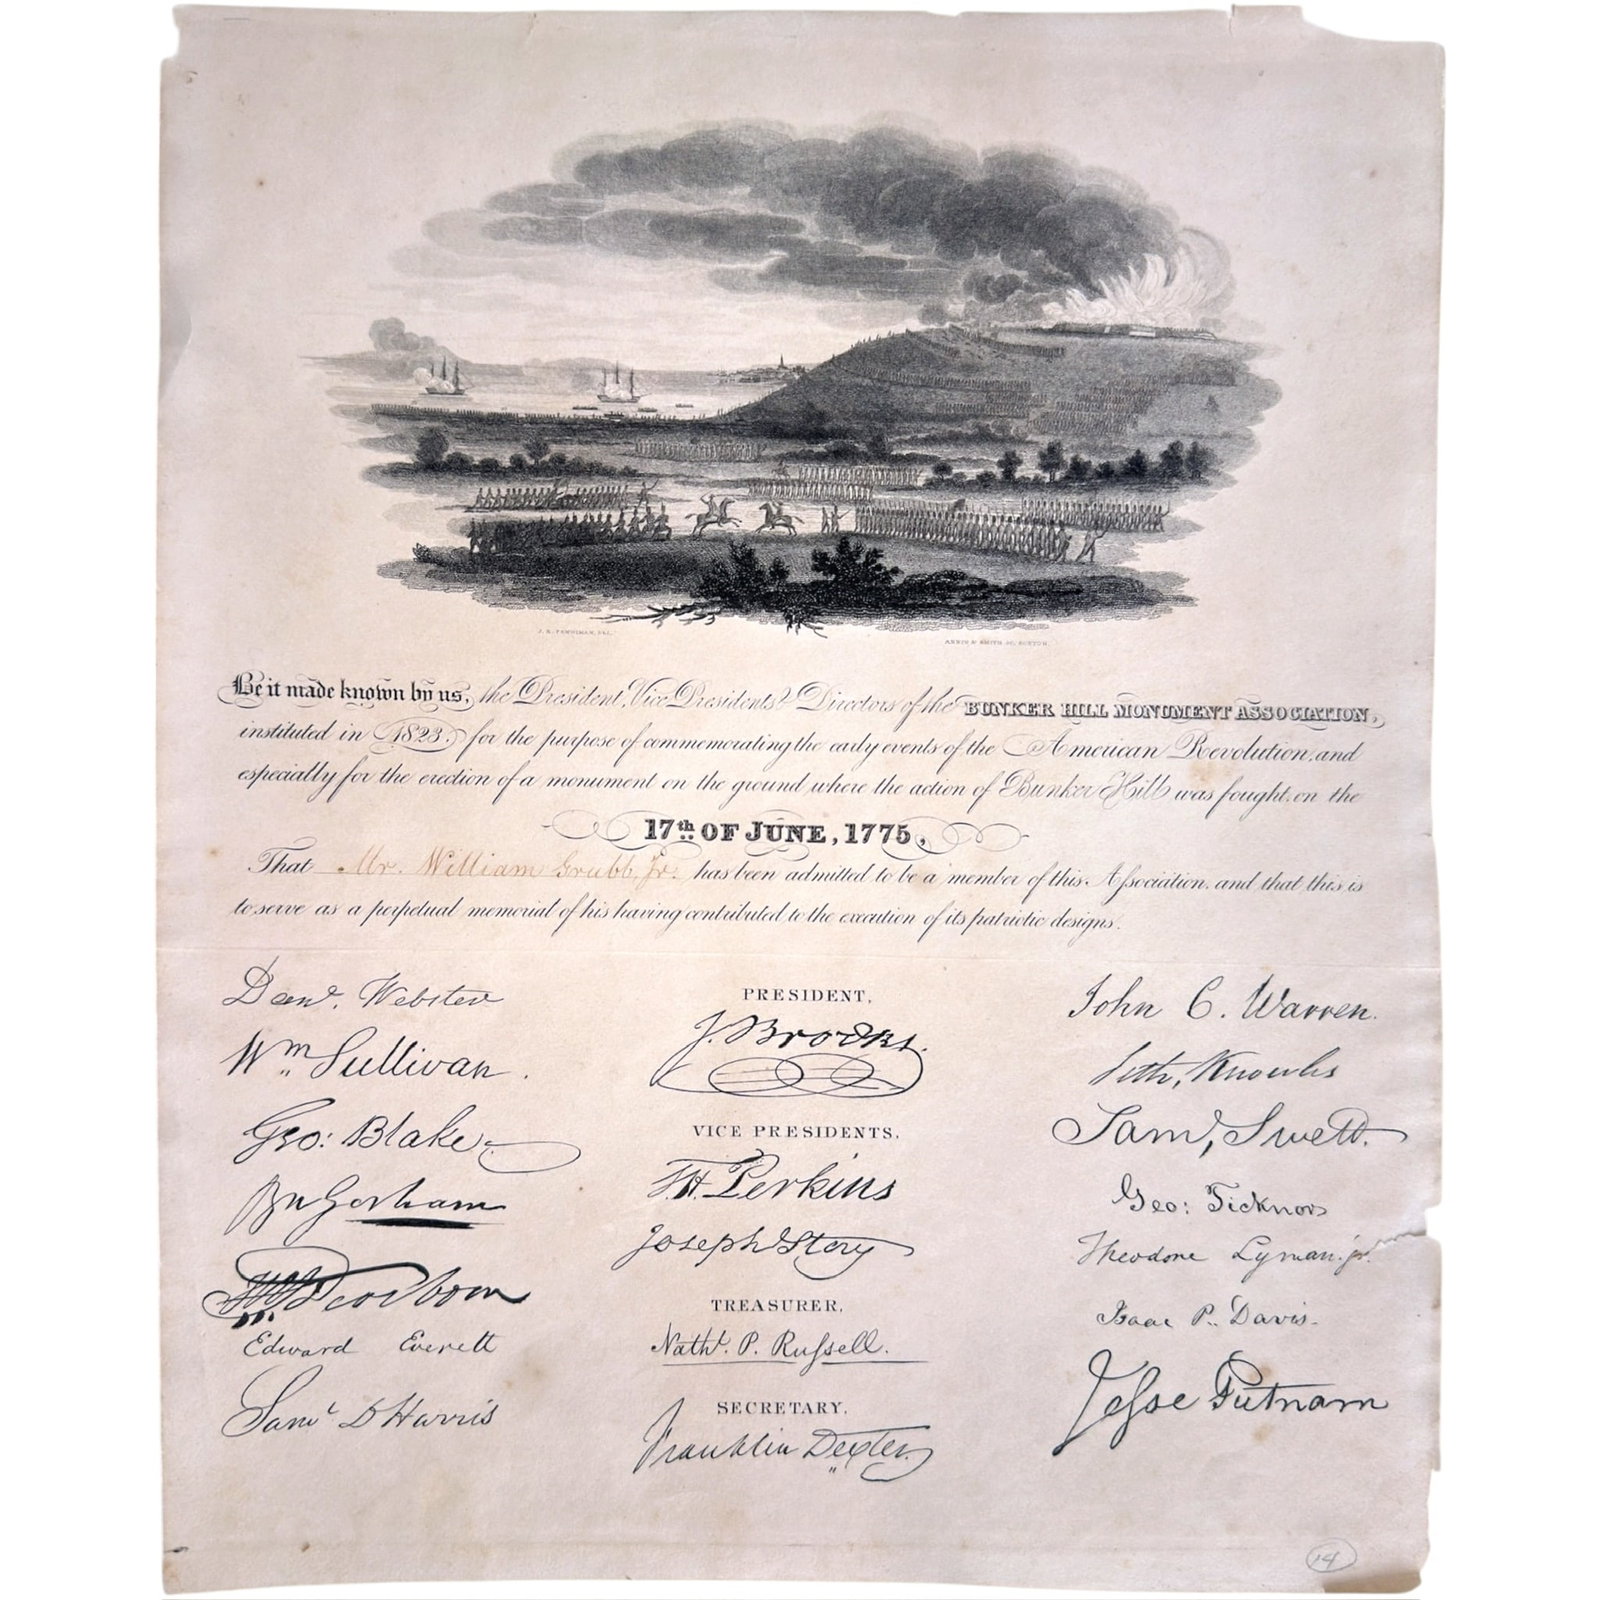 J. R. PENNIMAN, DEL.
ANNIN & SMITH SC. BOSTON.
Be it made known by us, the President, Vice Presidents & Directors of the BUNKER HILL MONUMENT ASSOCIATION,
instituted in 1823, for the purpose of commemorating the early events of the American Revolution, and
especially for the erection of a monument on the ground where the action of Bunker Hill was fought, on the
17th OF JUNE, 1775,
That Mr. William Grubb, Jr. has been admitted to be a member of this Association, and that this is
to serve as a perpetual memorial of his having contributed to the execution of its patriotic designs.
Danl. Webster
Wm Sullivan.
Geo: Blake
Bn Gorham
Dearborn
Edward Everett
Saml D Harris
PRESIDENT,
J. Brooks.
VICE PRESIDENTS.
T H. Perkins
Joseph Story
TREASURER,
Nathl. P. Russell.
SECRETARY,
Franklin Dexter,
John C. Warren.
Seth, Knowles
Saml, Swett.
Geo: Ticknor
Theodore Lyman. jr.
Isaac P. Davis.
Jesse Putnam
14